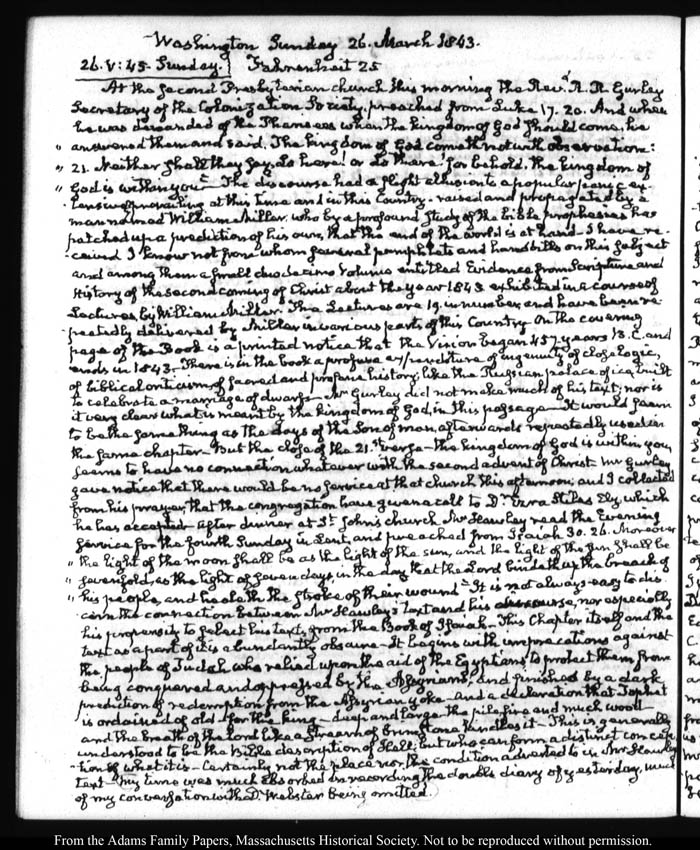 Washington Sunday 26. March 1843.
26. V:45. Sunday. Fahrenheit 25
At the second Presbyterian church this morning the Revd. R. R. Gurley
Secretary of the Colonization Society, preached from Luke 17. 20. And when
he was demanded of the Pharisees when the kingdom of God should come, he
" answered them and said, The kingdom of God cometh not with observation:
" 21. Neither shall they say, Lo here! or Lo there! for behold, the kingdom of
" God is within you" The discourse had a slight allusion to a popular panic ex-
tensively prevailing at this time and in this Country raised and propagated by a
man named William Miller, who by a profound study of the bible prophesies has
patched up a prediction of his own, that the end of the world is at hand. I have re-
ceived I know not from whom several pamphlets and handbills on this subject
and among them a small duodecimo volume entitled Evidence from Scripture and
History of the second coming of Christ about the year 1843 exhibited in a course of
Lectures, by William Miller. The Lectures are 19 in number, and have been re-
peatedly delivered by Miller in various parts of this Country. On the covering
page of the Book is a printed notice that the Vision began 457 years B.C. and
ends in 1843. There is in the book a profuse expenditure of ingenuity, of close logic,
of biblical criticism of sacred and profane history; like the Russian palace of ice built
to celebrate a marriage of dwarfs. Mr Gurley did not make much of his text; nor is
it very clear what is meant by the kingdom of God, in this passage. It would seem
to be the same thing as the days of the Son of man, afterwards repeatedly used in
the same chapter. But the close of the 21.st verse—the kingdom of God is within you,
seems to have no connection whatever with the second advent of Christ. Mr Gurley
gave notice that there would be no service at that church this afternoon; and I collected
from his prayer that the congregation have given a call to Dr. Ezra Stiles Ely, which
he has accepted. After dinner at St. John's church Mr Hawley read the Evening
service for the fourth Sunday in Lent, and preached from Isaiah 30. 26. Moreover
" the light of the moon shall be as the light of the sun, and the light of the sun shall be
" sevenfold, as the light of seven days, in the day that the Lord bindeth up the breach of
" his people, and healeth the stroke of their wound" It is not always easy to dis-
cern the connection between Mr Hawley's text and his discourse, nor especially
his propensity to select his texts from the Book of Isaiah. This Chapter itself and the
text as a part of it is abundantly obscure. It begins with imprecations against
the people of Judah who relied upon the aid of the Egyptians to protect them from
being conquered and oppressed by the Assyrians, and finishes by a dark
prediction of redemption from the Assyrian yoke—and a declaration that Tophet
is ordained of old—for the king—deep and large the pile, fire and much wood
and the breath of the Lord like a stream of brimstone kindles it—This is generally
understood to be the bible description of Hell; but who can form a distinct concep-
tion of what it is. Certainly not the place nor the condition adverted to in Mr Hawley's
text. My time was much absorbed in recording the double diary of yesterday, much
of my conversation with D. Webster being omitted.
From the Adams Family Papers, Massachusetts Historical Society. Not to be reproduced without permission.